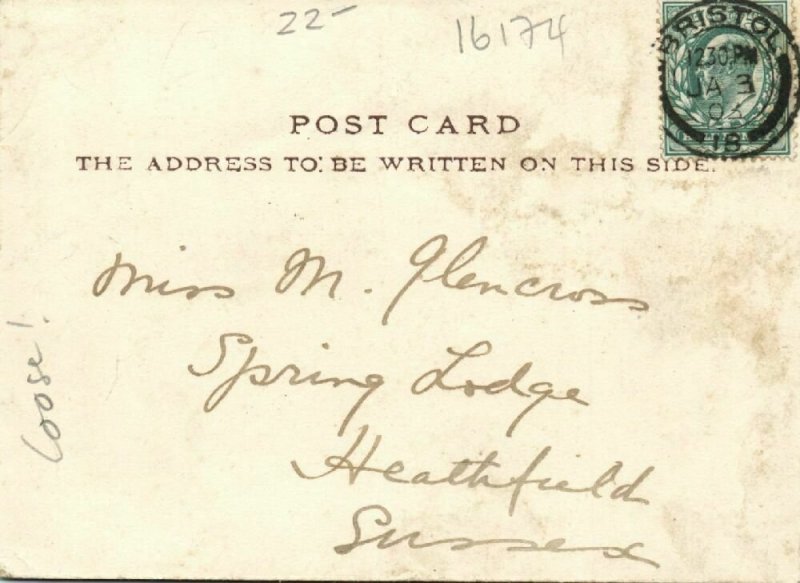 22-
16174
BRISTOL
12 30 PM
JA 3
18
POST CARD
THE ADDRESS TO BE WRITTEN ON THIS SIDE.
Miss M. Glencross
Spring Lodge
Heathfield
Sussex
Loose!